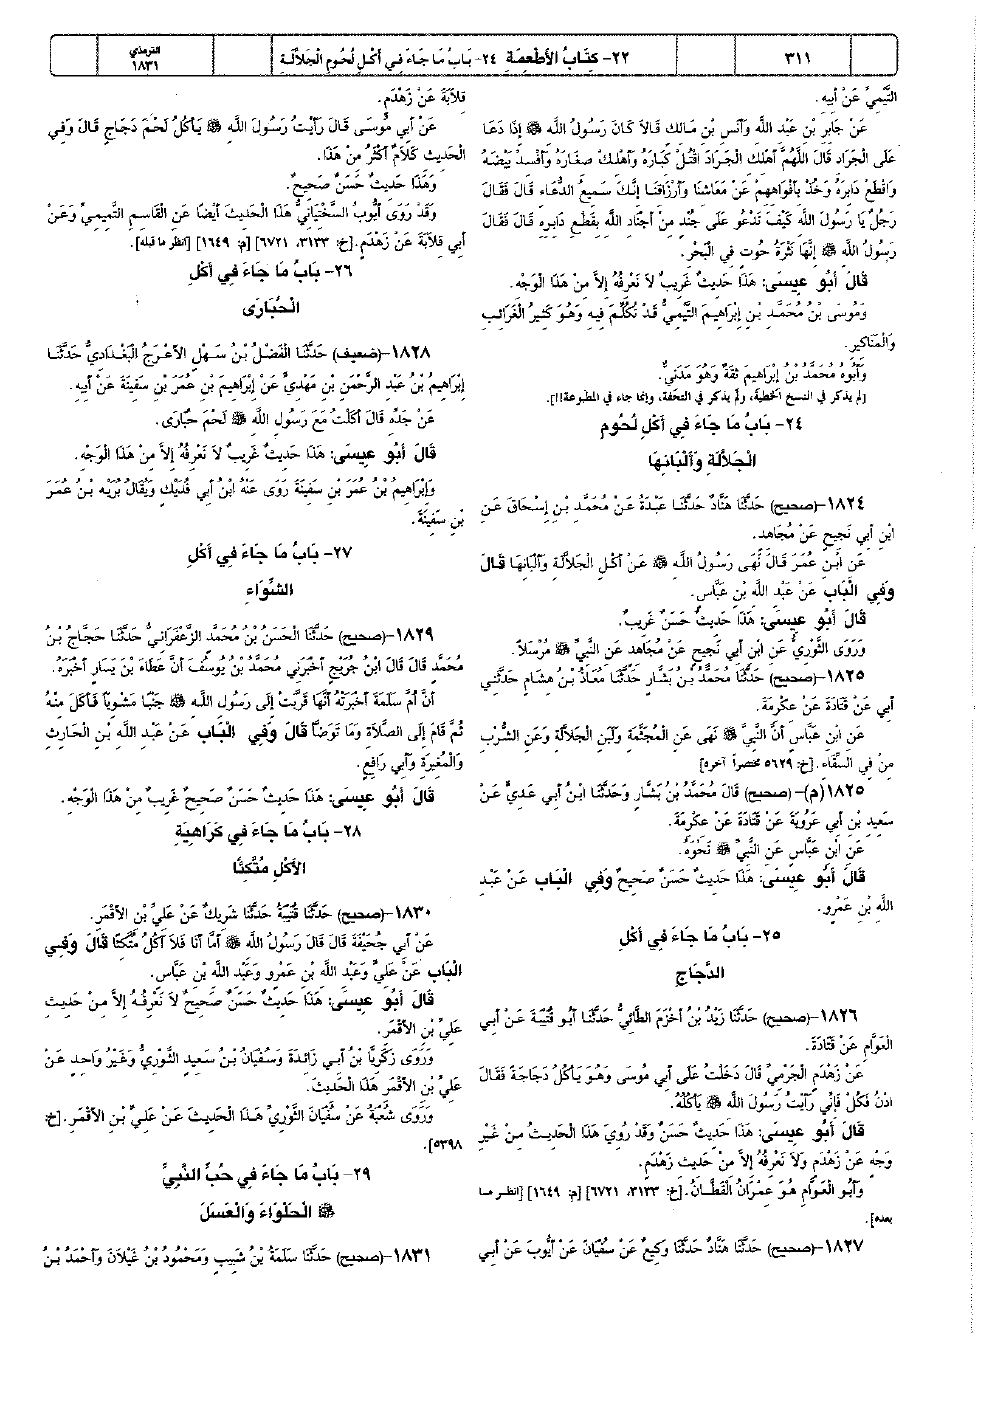 ٣١١
٢٢- كِتَابُ الأَطْعِمَة ٢٤- بَابُ مَا جَاءَ فِي أَكْلِ لُحُومِ الْجَلاَّلَةِ
الترمذي
١٨٣١
التَّيْمِيِّ عَنْ أَبِيهِ.
عَنْ جَابِرِ بْنِ عَبْدِ اللَّهِ وَأَنَسِ بْنِ مَالِكٍ قَالاَ كَانَ رَسُولُ اللَّهِ ﷺ إِذَا دَعَا
عَلَى الْجَرَادِ قَالَ اللَّهُمَّ أَهْلِكِ الْجَرَادَ اقْتُلْ كِبَارَهُ وَأَهْلِكْ صِغَارَهُ وَأَفْسِدْ بَيْضَهُ
وَاقْطَعْ دَابِرَهُ وَخُذْ بِأَفْوَاهِهِمْ عَنْ مَعَاشِنَا وَأَرْزَاقِنَا إِنَّكَ سَمِيعُ الدُّعَاءِ قَالَ فَقَالَ
رَجُلٌ يَا رَسُولَ اللَّهِ كَيْفَ تَدْعُو عَلَى جُنْدٍ مِنْ أَجْنَادِ اللَّهِ بِقَطْعِ دَابِرِهِ قَالَ فَقَالَ
رَسُولُ اللَّهِ ﷺ إِنَّهَا نَثْرَةُ حُوتٍ فِي الْبَحْرِ.
قَالَ أَبُو عِيسَى: هَذَا حَدِيثٌ غَرِيبٌ لاَ نَعْرِفُهُ إِلاَّ مِنْ هَذَا الْوَجْهِ.
وَمُوسَى بْنُ مُحَمَّدِ بْنِ إِبْرَاهِيمَ التَّيْمِيُّ قَدْ تُكُلِّمَ فِيهِ وَهُوَ كَثِيرُ الْغَرَائِبِ
وَالْمَنَاكِيرِ.
وَأَبُوهُ مُحَمَّدُ بْنُ إِبْرَاهِيمَ ثِقَةٌ وَهُوَ مَدَنِيٌّ.
[لم يذكر في النسخ الخطية، ولم يذكر في التحفة، وإنما جاء في المطبوعة!!].
٢٤- بَابُ مَا جَاءَ فِي أَكْلِ لُحُومِ
الْجَلاَّلَةِ وَأَلْبَانِهَا
١٨٢٤-(صحيح) حَدَّثَنَا هَنَّادٌ حَدَّثَنَا عَبْدَةُ عَنْ مُحَمَّدِ بْنِ إِسْحَاقَ عَنِ
ابْنِ أَبِي نَجِيحٍ عَنْ مُجَاهِدٍ.
عَنِ ابْنِ عُمَرَ قَالَ نَهَى رَسُولُ اللَّهِ ﷺ عَنْ أَكْلِ الْجَلاَّلَةِ وَأَلْبَانِهَا قَالَ
وَفِي الْبَابِ عَنْ عَبْدِ اللَّهِ بْنِ عَبَّاسٍ.
قَالَ أَبُو عِيسَى: هَذَا حَدِيثٌ حَسَنٌ غَرِيبٌ.
وَرَوَى الثَّوْرِيُّ عَنِ ابْنِ أَبِي نَجِيحٍ عَنْ مُجَاهِدٍ عَنِ النَّبِيِّ ﷺ مُرْسَلاً.
١٨٢٥-(صحيح) حَدَّثَنَا مُحَمَّدُ بْنُ بَشَّارٍ حَدَّثَنَا مُعَاذُ بْنُ هِشَامٍ حَدَّثَنِي
أَبِي عَنْ قَتَادَةَ عَنْ عِكْرِمَةَ.
عَنِ ابْنِ عَبَّاسٍ أَنَّ النَّبِيَّ ﷺ نَهَى عَنِ الْمُجَثَّمَةِ وَلَبَنِ الْجَلاَّلَةِ وَعَنِ الشُّرْبِ
مِنْ فِي السِّقَاءِ. [خ: ٥٦٢٩ مختصراً آخره]
١٨٢٥(م)-(صحيح) قَالَ مُحَمَّدُ بْنُ بَشَّارٍ وَحَدَّثَنَا ابْنُ أَبِي عَدِيٍّ عَنْ
سَعِيدِ بْنِ أَبِي عَرُوبَةَ عَنْ قَتَادَةَ عَنْ عِكْرِمَةَ.
عَنِ ابْنِ عَبَّاسٍ عَنِ النَّبِيِّ ﷺ نَحْوَهُ.
قَالَ أَبُو عِيسَى: هَذَا حَدِيثٌ حَسَنٌ صَحِيحٌ وَفِي الْبَابِ عَنْ عَبْدِ
اللَّهِ بْنِ عَمْرٍو.
٢٥- بَابُ مَا جَاءَ فِي أَكْلِ
الدَّجَاجِ
١٨٢٦-(صحيح) حَدَّثَنَا زَيْدُ بْنُ أَخْزَمَ الطَّائِيُّ حَدَّثَنَا أَبُو قُتَيْبَةَ عَنْ أَبِي
الْعَوَّامِ عَنْ قَتَادَةَ.
عَنْ زَهْدَمٍ الْجَرْمِيِّ قَالَ دَخَلْتُ عَلَى أَبِي مُوسَى وَهُوَ يَأْكُلُ دَجَاجَةً فَقَالَ
ادْنُ فَكُلْ فَإِنِّي رَأَيْتُ رَسُولَ اللَّهِ ﷺ يَأْكُلُهُ.
قَالَ أَبُو عِيسَى: هَذَا حَدِيثٌ حَسَنٌ وَقَدْ رُوِيَ هَذَا الْحَدِيثُ مِنْ غَيْرِ
وَجْهٍ عَنْ زَهْدَمٍ وَلاَ نَعْرِفُهُ إِلاَّ مِنْ حَدِيثِ زَهْدَمٍ.
وَأَبُو الْعَوَّامِ هُوَ عِمْرَانُ الْقَطَّانُ. [خ: ٣١٣٣، ٦٧٢١] [م: ١٦٤٩] [انظر ما
بعده].
١٨٢٧-(صحيح) حَدَّثَنَا هَنَّادٌ حَدَّثَنَا وَكِيعٌ عَنْ سُفْيَانَ عَنْ أَيُّوبَ عَنْ أَبِي
قِلاَبَةَ عَنْ زَهْدَمٍ.
عَنْ أَبِي مُوسَى قَالَ رَأَيْتُ رَسُولَ اللَّهِ ﷺ يَأْكُلُ لَحْمَ دَجَاجٍ قَالَ وَفِي
الْحَدِيثِ كَلاَمٌ أَكْثَرُ مِنْ هَذَا.
وَهَذَا حَدِيثٌ حَسَنٌ صَحِيحٌ.
وَقَدْ رَوَى أَيُّوبُ السَّخْتِيَانِيُّ هَذَا الْحَدِيثَ أَيْضًا عَنِ الْقَاسِمِ التَّمِيمِيِّ وَعَنْ
أَبِي قِلاَبَةَ عَنْ زَهْدَمٍ. [خ: ٣١٣٣، ٦٧٢١] [م: ١٦٤٩] [انظر ما قبله].
٢٦- بَابُ مَا جَاءَ فِي أَكْلِ
الْحُبَارَى
١٨٢٨-(ضعيف) حَدَّثَنَا الْفَضْلُ بْنُ سَهْلٍ الأَعْرَجُ الْبَغْدَادِيُّ حَدَّثَنَا
إِبْرَاهِيمُ بْنُ عَبْدِ الرَّحْمَنِ بْنِ مَهْدِيٍّ عَنْ إِبْرَاهِيمَ بْنِ عُمَرَ بْنِ سَفِينَةَ عَنْ أَبِيهِ.
عَنْ جَدِّهِ قَالَ أَكَلْتُ مَعَ رَسُولِ اللَّهِ ﷺ لَحْمَ حُبَارَى.
قَالَ أَبُو عِيسَى: هَذَا حَدِيثٌ غَرِيبٌ لاَ نَعْرِفُهُ إِلاَّ مِنْ هَذَا الْوَجْهِ.
وَإِبْرَاهِيمُ بْنُ عُمَرَ بْنِ سَفِينَةَ رَوَى عَنْهُ ابْنُ أَبِي فُدَيْكٍ وَيُقَالُ بُرَيْهُ بْنُ عُمَرَ
بْنِ سَفِينَةَ.
٢٧- بَابُ مَا جَاءَ فِي أَكْلِ
الشِّوَاءِ
١٨٢٩-(صحيح) حَدَّثَنَا الْحَسَنُ بْنُ مُحَمَّدٍ الزَّعْفَرَانِيُّ حَدَّثَنَا حَجَّاجُ بْنُ
مُحَمَّدٍ قَالَ قَالَ ابْنُ جُرَيْجٍ أَخْبَرَنِي مُحَمَّدُ بْنُ يُوسُفَ أَنَّ عَطَاءَ بْنَ يَسَارٍ أَخْبَرَهُ.
أَنَّ أُمَّ سَلَمَةَ أَخْبَرَتْهُ أَنَّهَا قَرَّبَتْ إِلَى رَسُولِ اللَّهِ ﷺ جَنْبًا مَشْوِيًّا فَأَكَلَ مِنْهُ
ثُمَّ قَامَ إِلَى الصَّلاَةِ وَمَا تَوَضَّأَ قَالَ وَفِي الْبَابِ عَنْ عَبْدِ اللَّهِ بْنِ الْحَارِثِ
وَالْمُغِيرَةِ وَأَبِي رَافِعٍ.
قَالَ أَبُو عِيسَى: هَذَا حَدِيثٌ حَسَنٌ صَحِيحٌ غَرِيبٌ مِنْ هَذَا الْوَجْهِ.
٢٨- بَابُ مَا جَاءَ فِي كَرَاهِيَةِ
الأَكْلِ مُتَّكِئًا
١٨٣٠-(صحيح) حَدَّثَنَا قُتَيْبَةُ حَدَّثَنَا شَرِيكٌ عَنْ عَلِيِّ بْنِ الأَقْمَرِ.
عَنْ أَبِي جُحَيْفَةَ قَالَ قَالَ رَسُولُ اللَّهِ ﷺ أَمَّا أَنَا فَلاَ آكُلُ مُتَّكِئًا قَالَ وَفِي
الْبَابِ عَنْ عَلِيٍّ وَعَبْدِ اللَّهِ بْنِ عَمْرٍو وَعَبْدِ اللَّهِ بْنِ عَبَّاسٍ.
قَالَ أَبُو عِيسَى: هَذَا حَدِيثٌ حَسَنٌ صَحِيحٌ لاَ نَعْرِفُهُ إِلاَّ مِنْ حَدِيثِ
عَلِيِّ بْنِ الأَقْمَرِ.
وَرَوَى زَكَرِيَّا بْنُ أَبِي زَائِدَةَ وَسُفْيَانُ بْنُ سَعِيدٍ الثَّوْرِيُّ وَغَيْرُ وَاحِدٍ عَنْ
عَلِيِّ بْنِ الأَقْمَرِ هَذَا الْحَدِيثَ.
وَرَوَى شُعْبَةُ عَنْ سُفْيَانَ الثَّوْرِيِّ هَذَا الْحَدِيثَ عَنْ عَلِيِّ بْنِ الأَقْمَرِ. [خ:
٥٣٩٨].
٢٩- بَابُ مَا جَاءَ فِي حُبِّ النَّبِيِّ
ﷺ الْحَلْوَاءَ وَالْعَسَلَ
١٨٣١-(صحيح) حَدَّثَنَا سَلَمَةُ بْنُ شَبِيبٍ وَمَحْمُودُ بْنُ غَيْلاَنَ وَأَحْمَدُ بْنُ